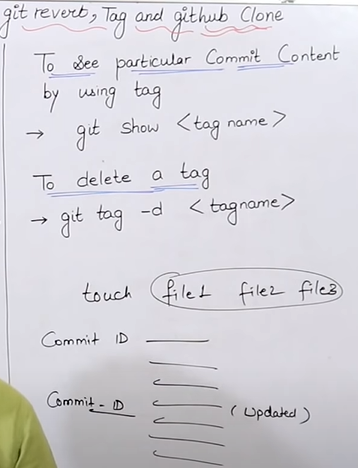 git reverb, Tag and github Clone
To See particular Commit Content
by using tag
→ git show <tag name>
To delete a tag
→ git tag -d <tagname>
touch file1 file2 file3
Commit ID
Commit - ID (updated)